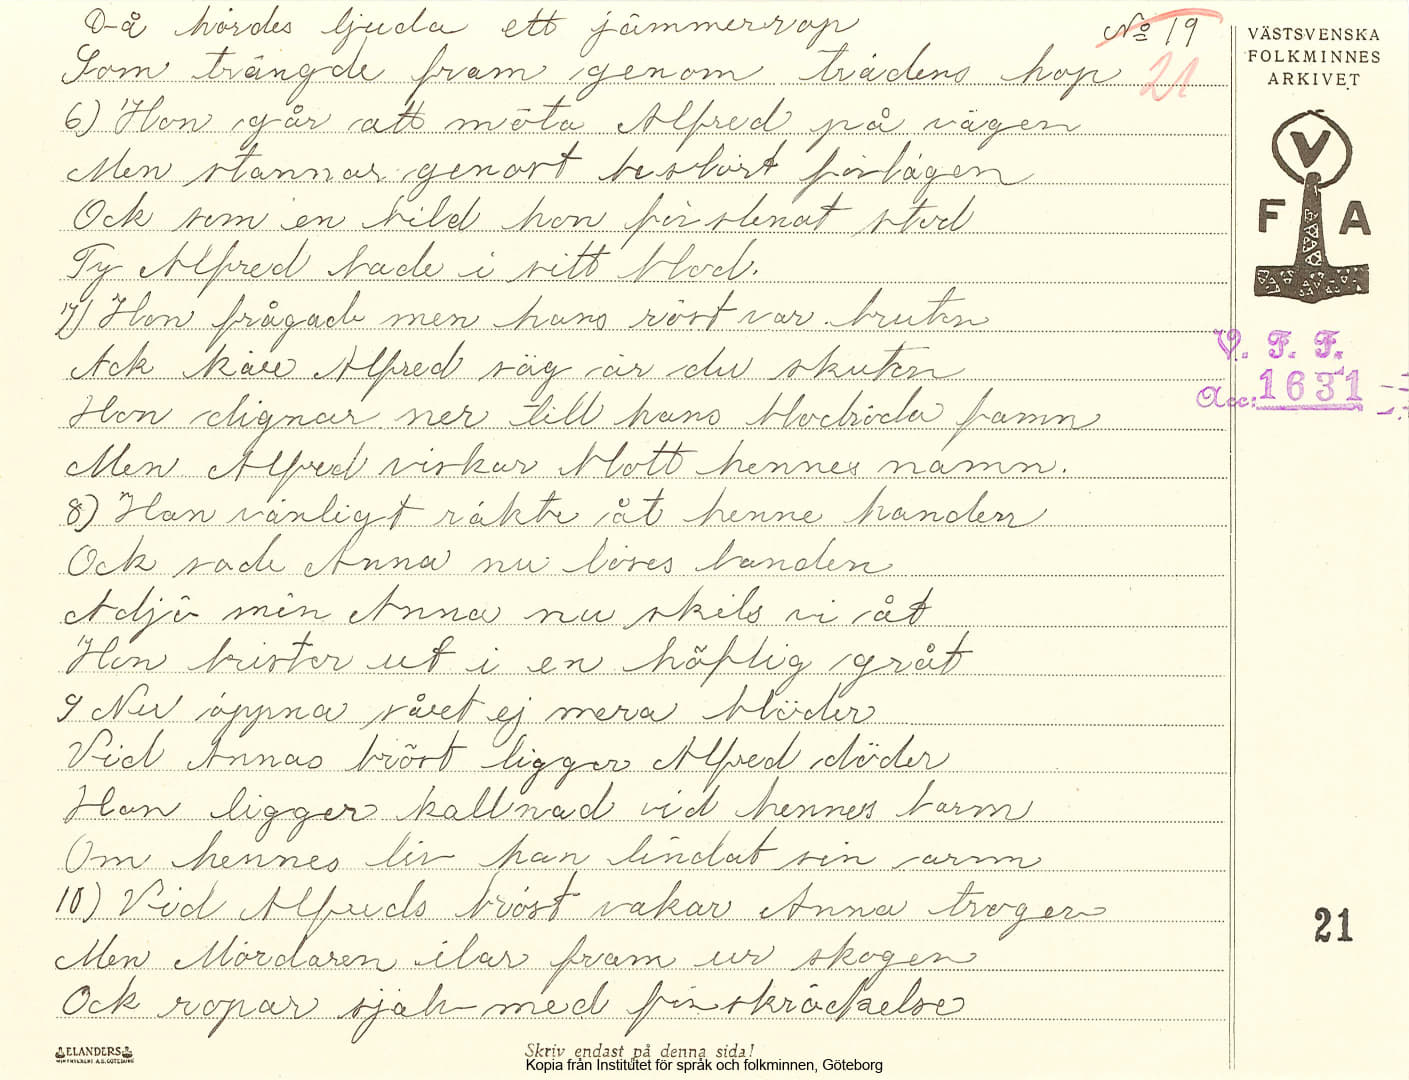 Då hördes ljuda ett jämmerrop
Som trängde fram genom trädens hop
6) Hon går att möta Alfred på vägen
Men stannar genast bestört förlägen
Ock som en bild hon förstenat stod
Ty Alfred bade i sitt blod.
7) Hon frågade men hans röst var bruten
Ack käre Alfred säg är du skuten
Hon dignar ner till hans blodröda famn
Men Alfred viskar blott hennes namn.
8) Han vänligt räkte åt henne handen
Ock sade Anna nu löses banden
Adjö min Anna nu skils vi åt
Hon brister ut i en häftlig gråt
9 Nu öppna såret ej mera blöder
Vid Annas bröst ligger Alfred döder
Han ligger kallnad vid hennes barm
Om hennes liv han lindat sin arm
10) Vid Alfreds bröst vakar Anna trogen
Men Mördaren ilar fram ur skogen
Ock ropar själv med förskräckelse
No 19
21
VÄSTSVENSKA
FOLKMINNES
ARKIVET
V
F A
V. F. F.
Acc: 1631
21
ELANDERS
Skriv endast på denna sida!
Kopia från Institutet för språk och folkminnen, Göteborg